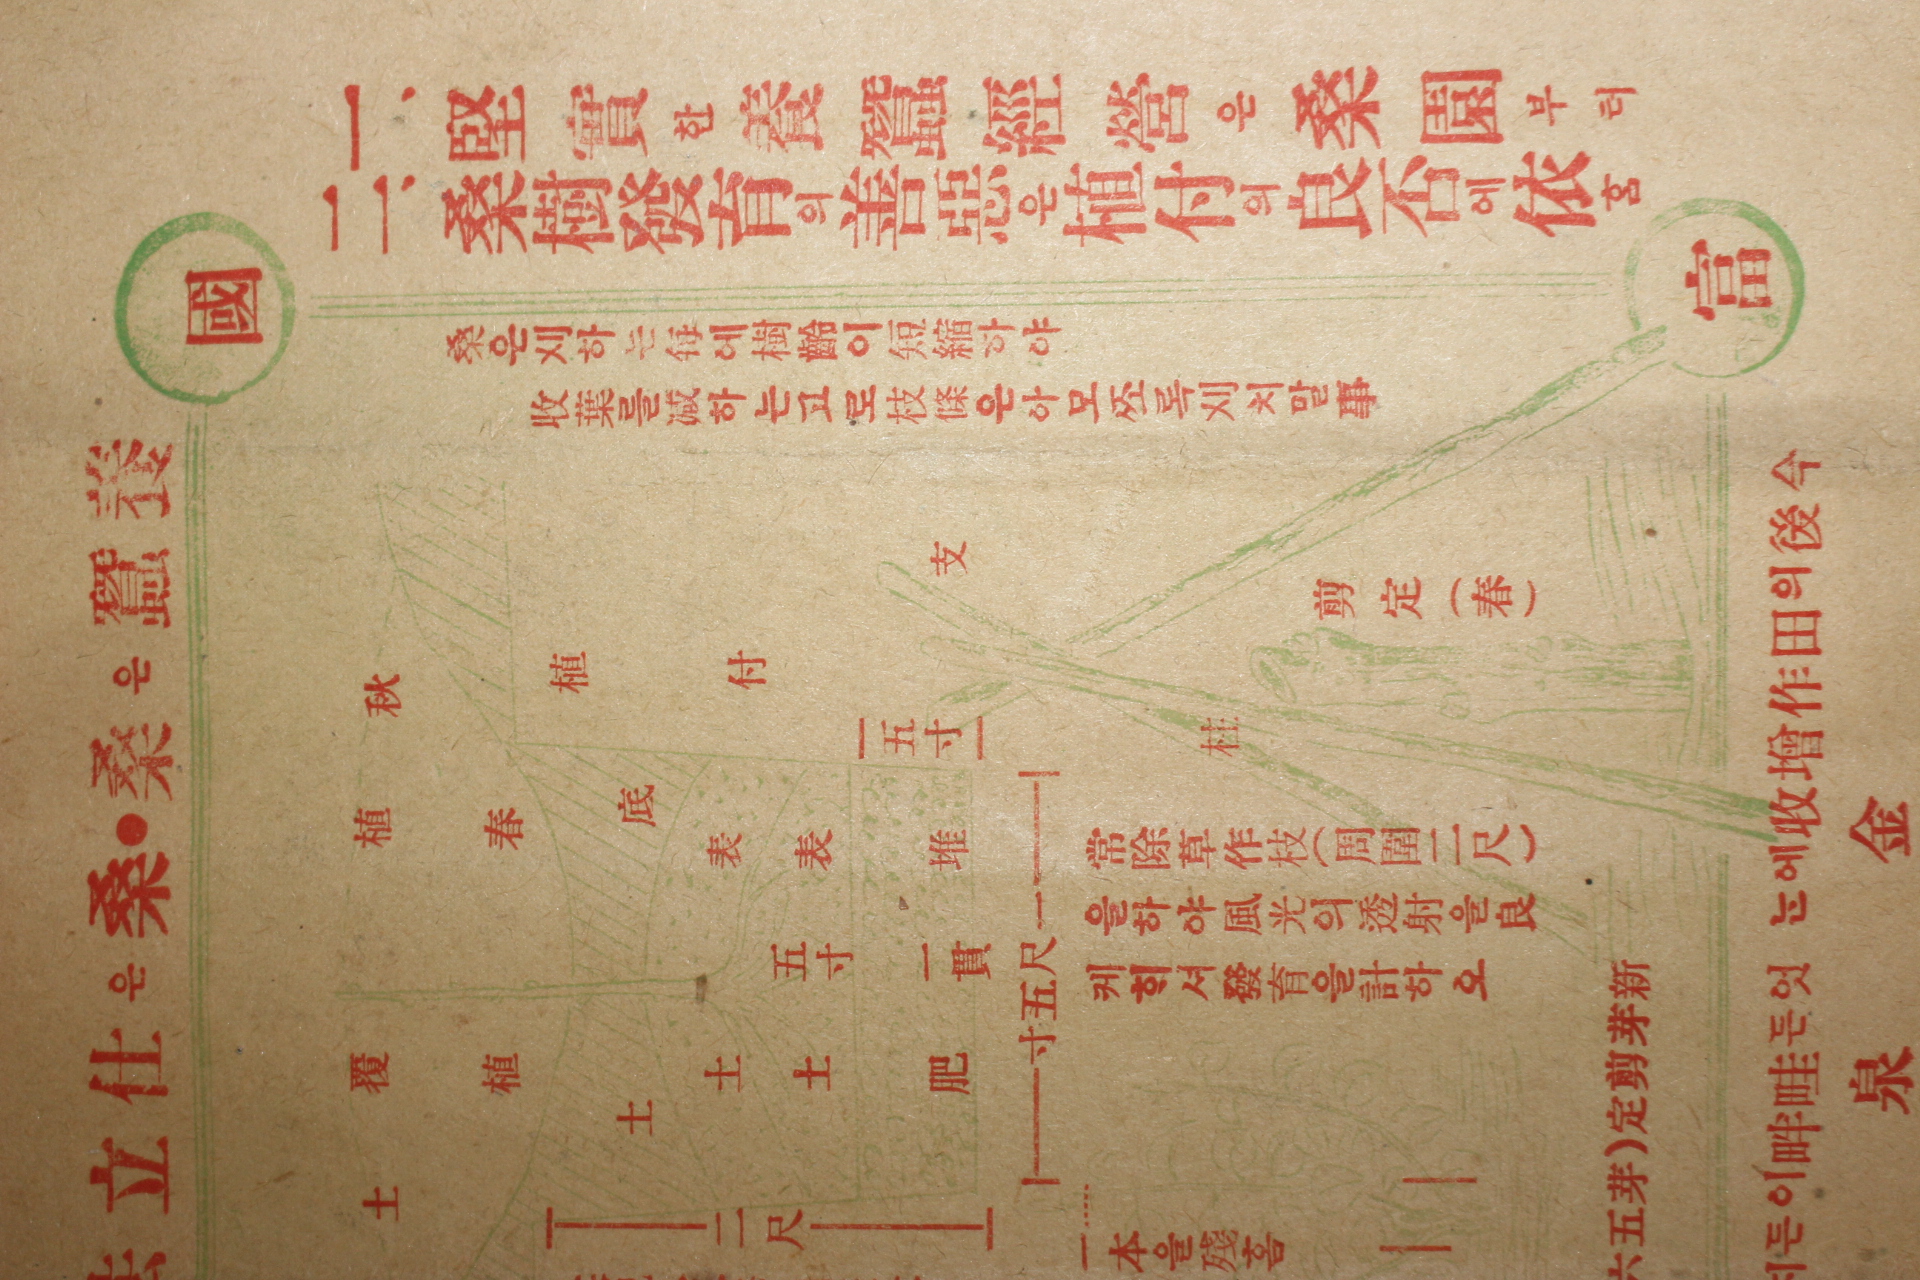 養蠶은 桑●桑은 仕立法
國
一、堅實한養蠶經營은桑園부터
二、桑樹發育의善惡은植付의良否에依홈
桑은刈하는每에樹齡이短縮하야
收葉를減하는고로枝條은아모쪼록刈치말事
秋植付
植春
底
表
表
堆
覆植
土
土
土
土
肥
五寸
一貫
五寸
二尺
一尺五寸
支柱
剪定(春)
常除草作枝(周圍二尺)
을하야風光의透射을良
케희셔發育을計하오
一本을殘홈
新芽剪定(芽五六
富
今後의田作增收에눈 엇든畦畔이든지
金泉